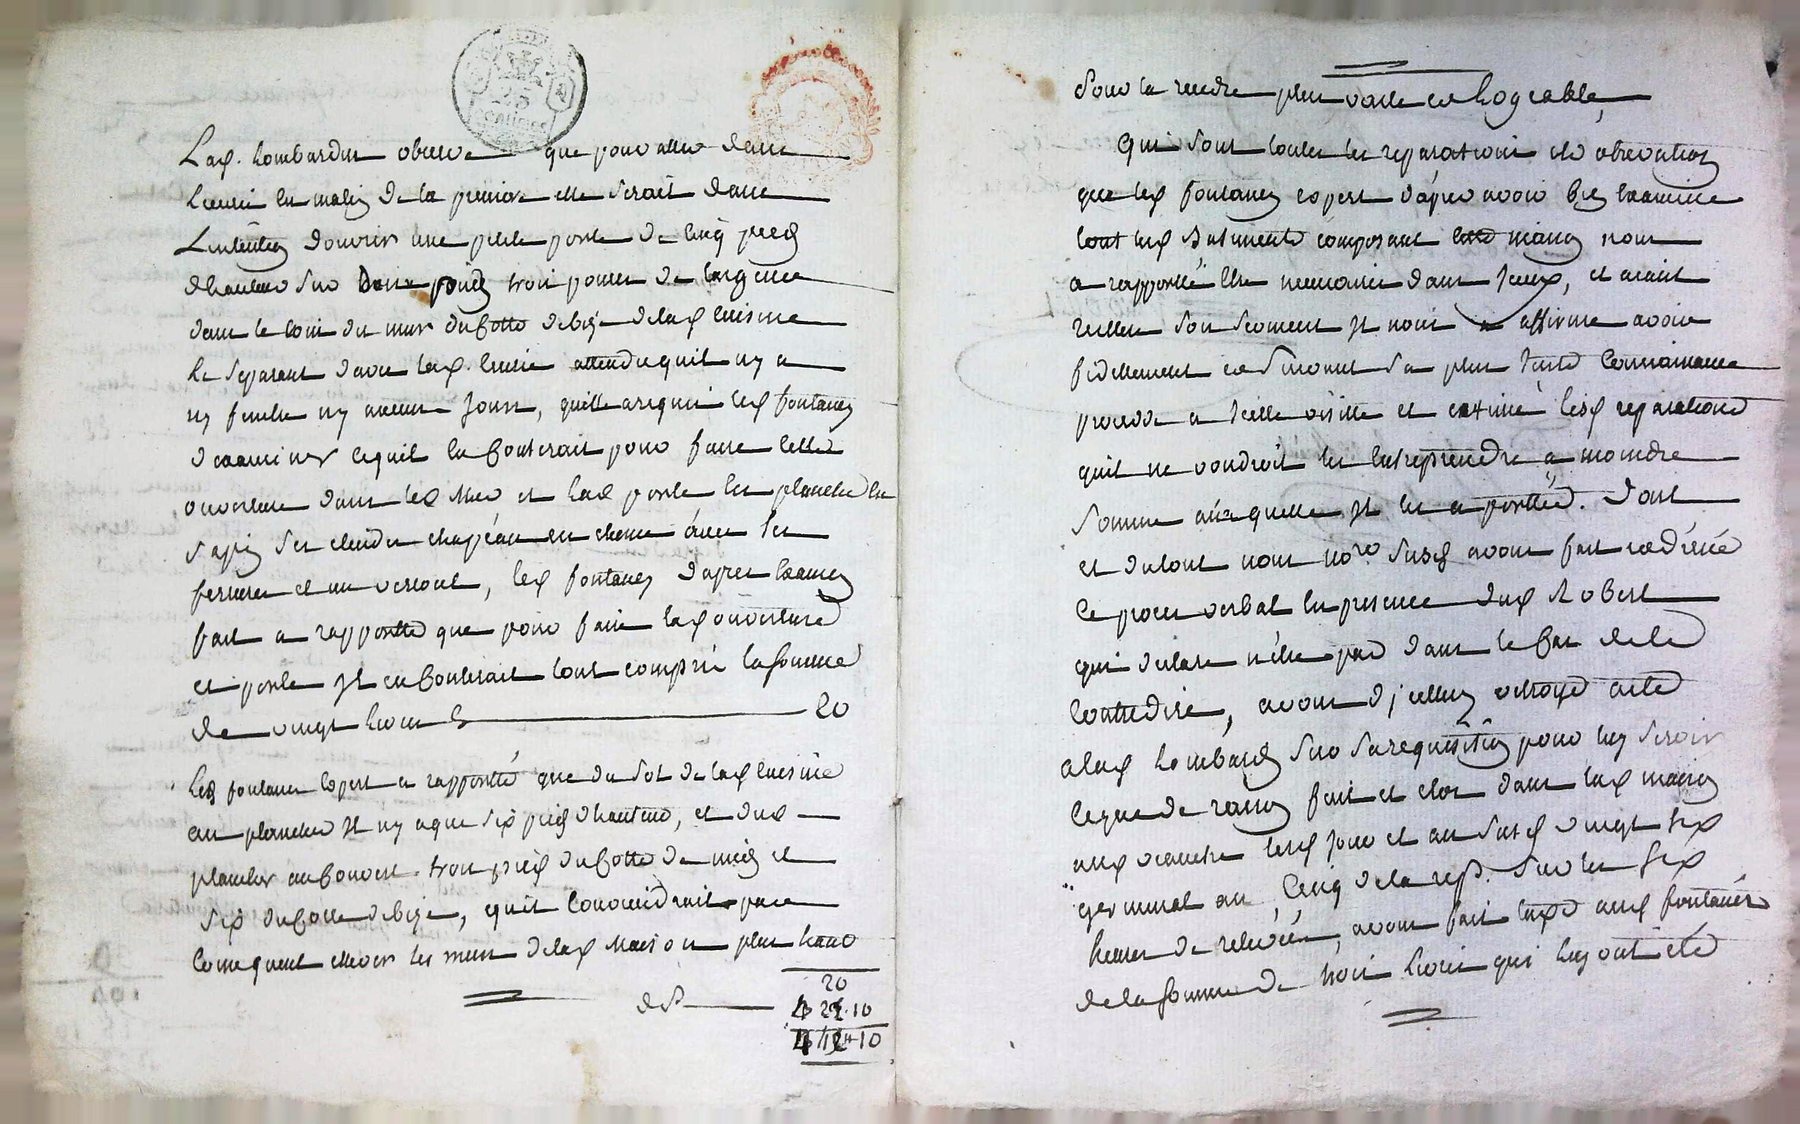 25
centimes
Lad. Lombardin observe que pour aller dans
Lecurie en malin de la premiere elle serait dans
Lintention douvrir une petite porte de cinq pieds
dhauteur sur Deux pieds trois pouces de largeur
dans le coin du mur du Cotté debize de lad cuisine
le separant davec lad. Ecurie attendu quil ny a
ny fenetre ny aucun Jour, quelle arequis led fontaney
dexaminer cequil en Couterait pour faire cette
ouverture dans led Mur et lad porte les planches en
sapin ses chapeau en chene avec les
ferrures et un verrout, led fontaney dapres Examen
fait a rapportté que pour faire lad ouverture
et porte Jl en Couterait tout compris la somme
de vingt livres 20
Led fontaney Expert a rapportté que du sol de lad cuisine
au plancher Jl ny aque six pieds dhauteur, et dud
plancher au Couvert trois pieds du Cotté de midy et
six du Cotté debize, quil Conviendrait par
Consequent ellever les murs de lad Maison plus haut
20
de P
422.10
442.10
Pour la rendre plus vaste et Logeable,
Qui sont toutes les reparations et observation
que led fontaney expert dapres avoir bien Examiné
tout les Batiments composant maison nous
a rapportté Etre necessaires dans Jceux, et aiant
reitteré son serment Jl nous a affirmé avoir
fidellement et suivant sa plus juste Connaissance
procedé a Jcelle visitte et estimé lesd reparations
quil ne voudroit les Entreprendre a moindre
somme auxquelle Jl les a porttée. Dont
et dutout nous no.re susd avons fait et dressé
Ce proces verbal En presence dud Robert
qui declare nêtre pas dans le Cas de le
Contredire, avons dj celluy octroyé acte
alad Lombard sur sarequisition pour luy servir
ceque de raison fait et clos dans lad maison
aud lesd jour et an susd vingt six
germinal an Cinq de la rep. sur les six
heures de relevée, avons fait taxe aud fontaney
de la somme de trois livres qui luy ont été